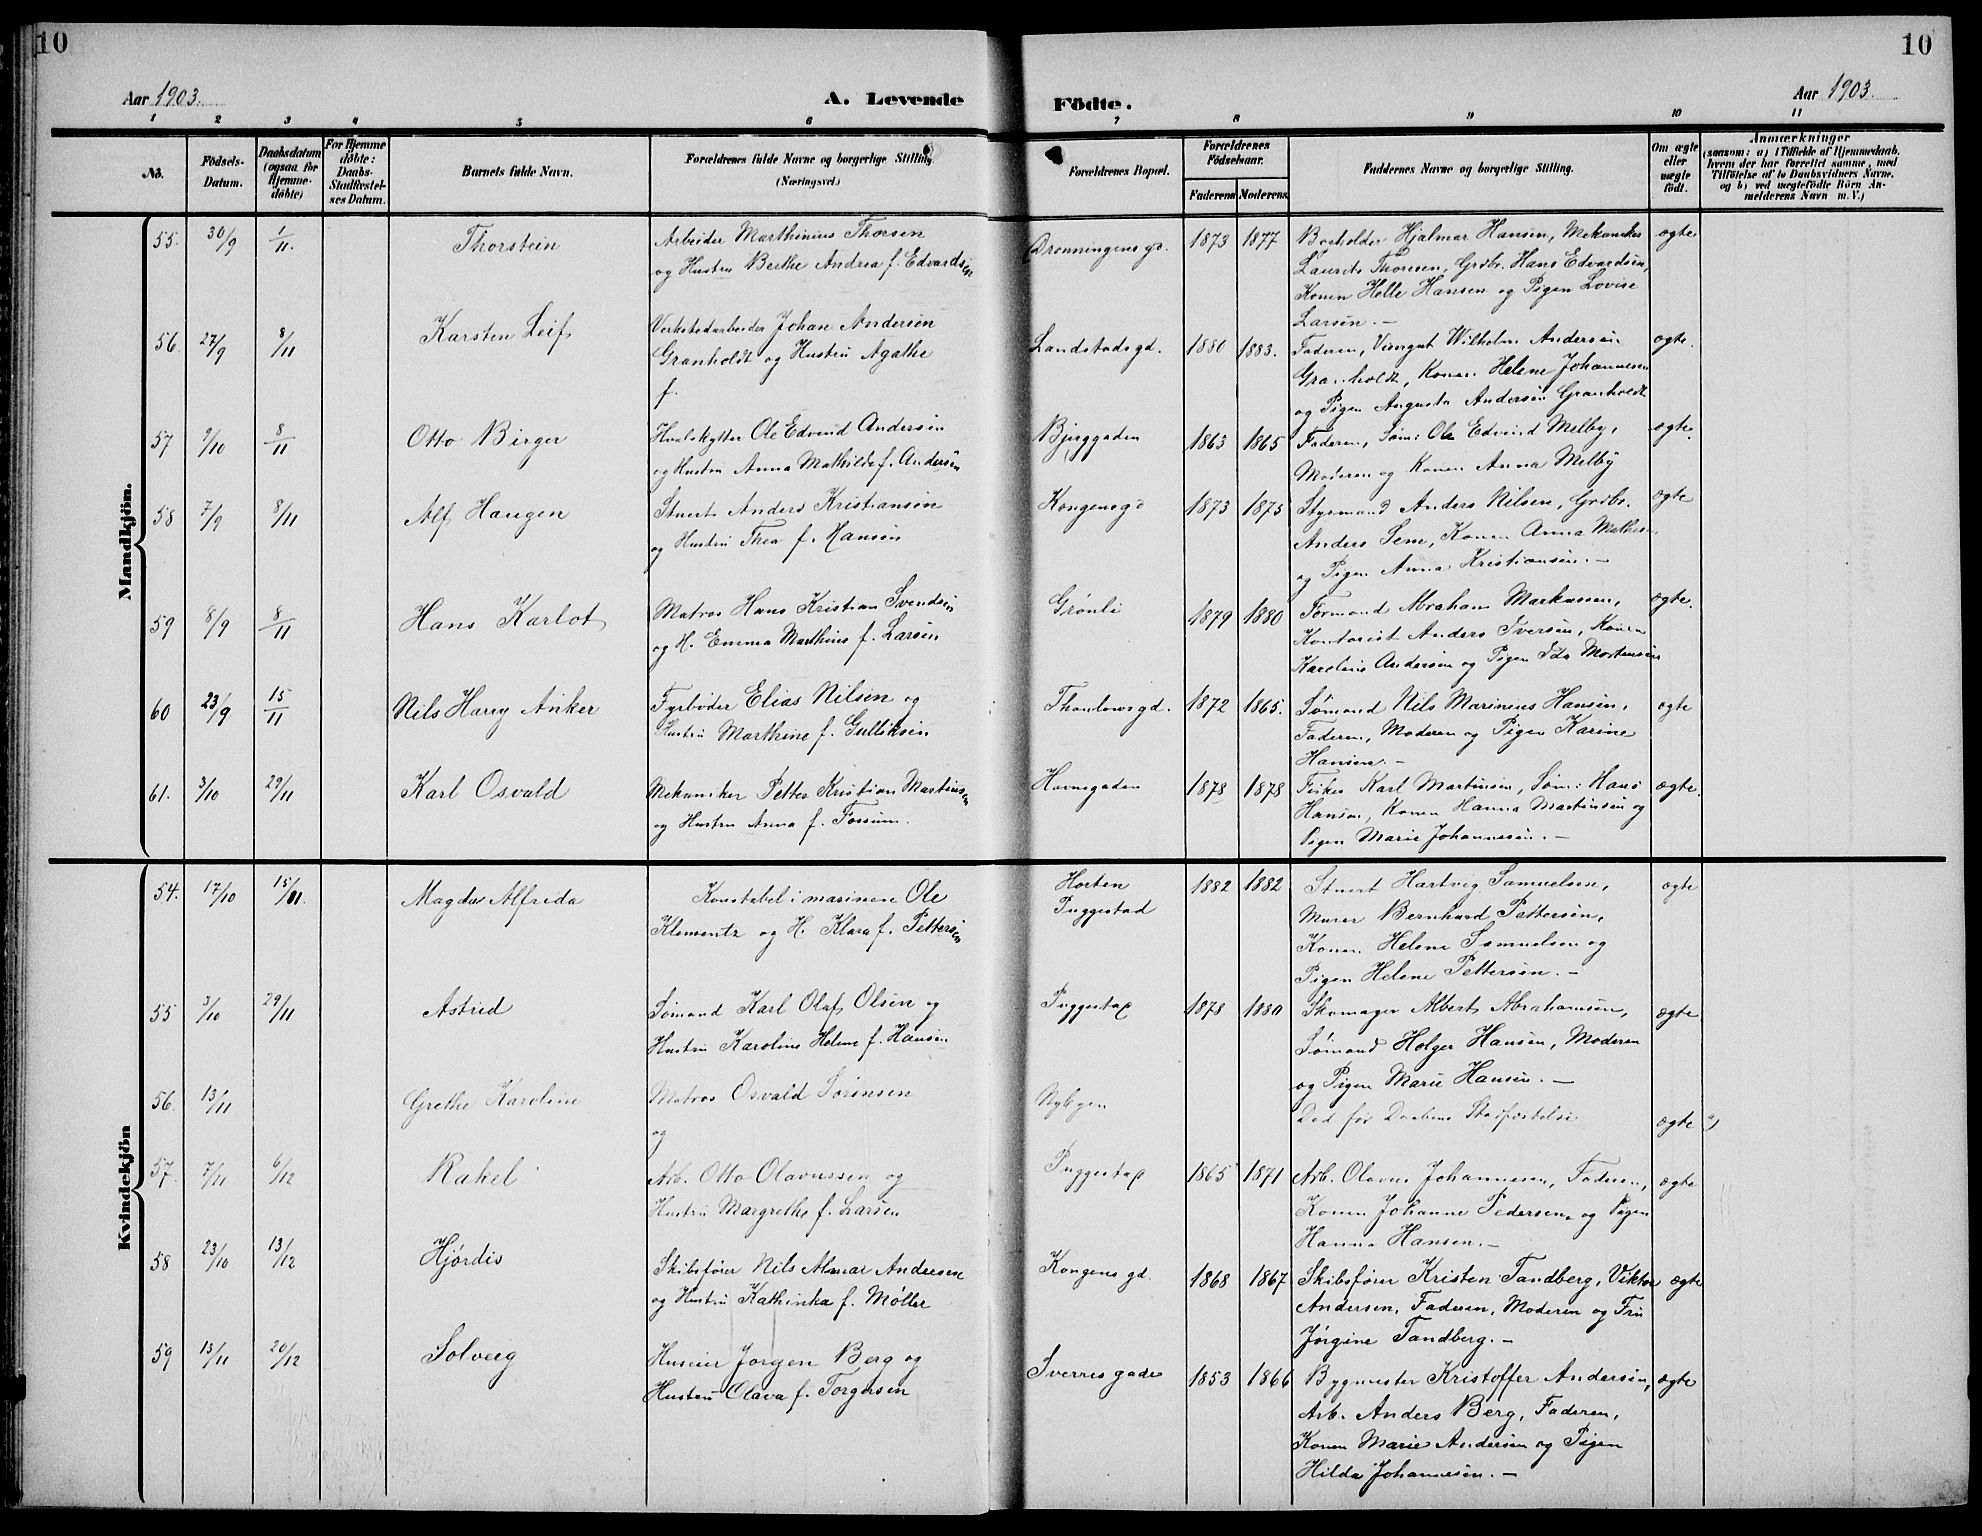 10
10
Aar 1903.
A. Levende
Födte.
Aar 1903.
1 2 3 4 5 6 7 8 9 10 11
No.
Födsels-Datum.
Daabsdatum (ogsaa for Hjemme-döbte)
For Hjemme döbte: Daabs-Stadfæstel-ses Datum.
Barnets fulde Navn.
Forældrenes fulde Navne og borgerlige Stilling. (Næringsvei.)
Forældrenes Bopæl.
Forældrenes Födselsaar.
Faderens Moderens
Faddernes Navne og borgerlige Stilling.
Om ægte eller uægte födt.
Anmærkninger
(saasom: a) i Tilfælde af Hjemmedaab, hvem der har forrettet samme, med Tilföielse af to Daabsvidners Navne, og b) ved uægtefödte Börn An-melderens Navn m.V.)
Mandkjön.
55. 30/9 1/11. Thorstein
Arbeider Marthinius Thorsen
og Hustru Berthe Andrea f. Edvardsen
Dronningens gd. 1873 1877
Bogholder Hjalmar Hansen, Mekaniker
Laurits Thorsen, Grdbr. Hans Edvardsen,
Konen Helle Hansen og Pigen Lovise
Larsen. —
ægte
56. 27/9 8/11 Karsten Leif
Verkstedarbeider Johan Andersen
Granholdt og Hustru Agathe
f.
Landstadsgd. 1880 1883.
Faderen, Visergut Wilhelm Andersen
Granholdt, Konen Helene Johannesen
og Pigen Augusta Andersen Granholdt
ægte.
57 9/10 8/11 Otto Birger
Hvalskytter Ole Edvind Andersen
og Hustru Anna Mathilde f. Andersen
Bjerggaden 1863 1865
Faderen, Søm: Ole Edvind Melby,
Moderen og Konen Anna Melby
ægte.
58 7/9 8/11 Alf Haugen
Stuert Anders Kristiansen
og Hustru Thea f. Hansen
Kongensgd 1873 1875
Styrmand Anders Nilsen, Grdbr.
Anders Sem, Konen Anna Mathisen
og Pigen Anna Kristiansen. —
ægte
59 8/9 8/11 Hans Karlot
Matros Hans Kristian Svendsen
og H. Emma Marthine f. Larsen
Grønli 1879 1880
Formand Abraham Markussen,
Kontorist Anders Iversen, Konen
Karoline Andersen og Pigen Ida Mortensen
ægte.
60 23/9 15/11 Nils Harry Anker
Fyrbøder Elias Nilsen og
Hustru Marthine f. Gulliksen
Thaulowsgd. 1872 1865.
Sømand Nils Marinius Hansen,
Faderen, Moderen og Pigen Karine
Hansen. —
ægte
61. 3/10 29/11 Karl Osvald
Mekaniker Petter Kristian Martinsen
og Hustru Anna f. Fossum.
Havnegaden 1878 1878
Fisker Karl Martinsen, Søm: Hans
Hansen, Konen Hanna Martinsen og
Pigen Marie Johannesen. —
ægte.
Kvindekjön
54. 17/10 15/11. Magda Alfrida
Konstabel i marinene Ole
Klementz og H. Klara f. Pettersen
Horten
Puggestad 1882 1882
Stuert Hartvig Samuelsen,
Murer Bernhard Pettersen,
Konen Helene Samuelsen og
Pigen Helene Pettersen. —
ægte
55 3/10 29/11 Astrid
Sømand Karl Olaf Olsen og
Hustru Karoline Helene f. Hansen
Puggestad 1878 1880
Skomager Albert Abrahamsen,
Sømand Holger Hansen, Moderen
og Pigen Marie Hansen. —
ægte
56. 13/11 Grethe Karoline
Matros Osvald Sørensen
og
Nybyen
Død før Daabens Stadfæstelse
ægte a)
57. 7/11 6/12 Rakel
Arb. Otto Olavussen og
Hustru Margrethe f. Larsen
Puggestad 1865 1871
Arb. Olavus Johannessen, Faderen,
Konen Johanne Pedersen, og Pigen
Hanna Hansen. —
ægte
58 23/10 13/12 Hjørdis
Skibsfører Nils Almar Andresen
og Hustru Kathinka f. Møller
Kongens gd. 1868 1867
Skibsfører Kristen Tandberg, Viktor
Andersen, Faderen, Moderen og Fru
Jørgine Tandberg. —
ægte
59 13/11 20/12 Solveig
Huseier Jørgen Berg og
Hustru Olava f. Torgersen
Sverres gade 1853 1866
Bygmester Kristoffer Andersen,
Arb. Anders Berg, Faderen,
Konen Marie Andersen og Pigen
Hilda Johannesen. —
ægte